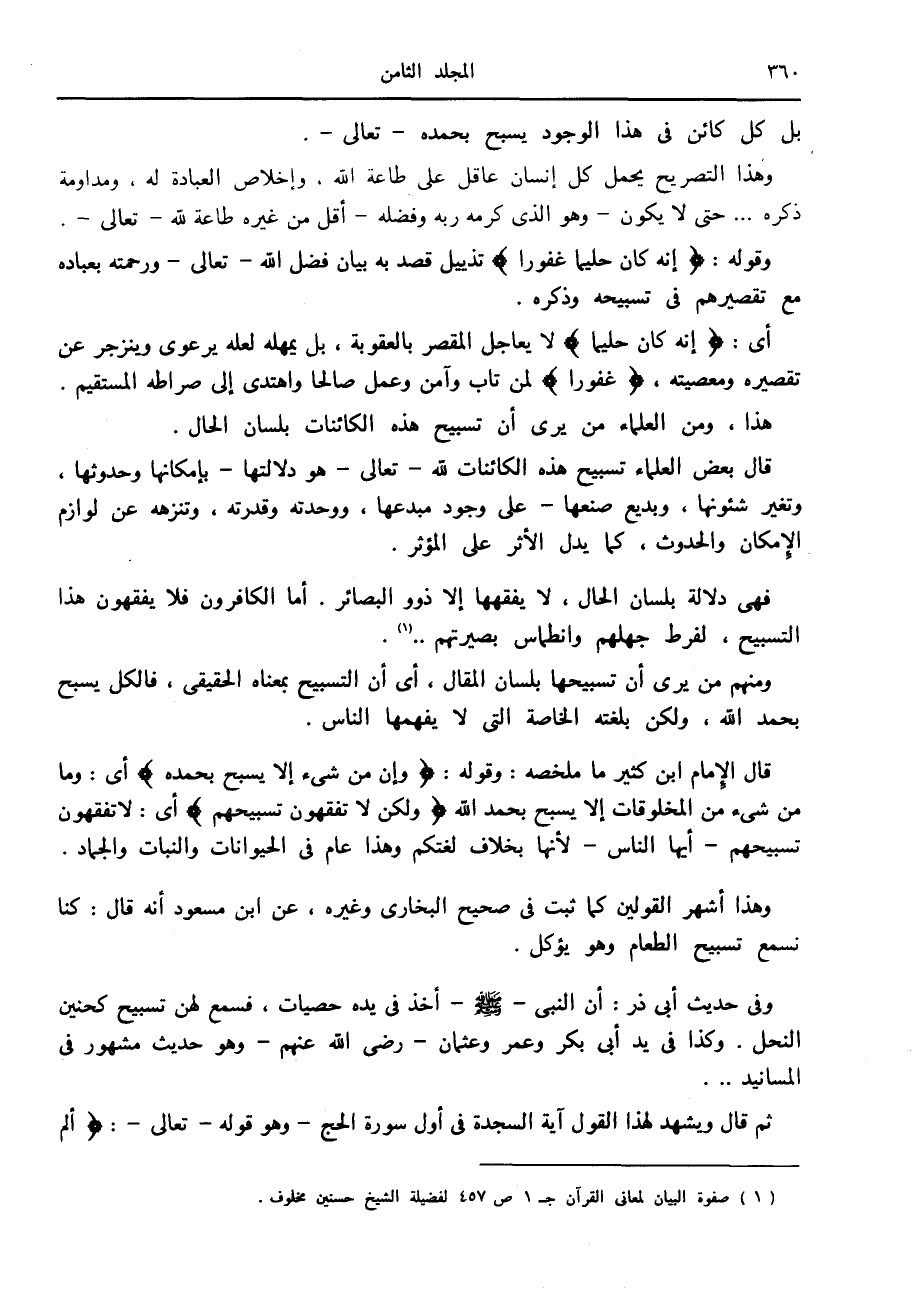 ٣٦٠ المجلد الثامن
بل كل كائن فى هذا الوجود يسبح بحمده – تعالى – .
وهذا التصريح يحمل كل إنسان عاقل على طاعة الله ، وإخلاص العبادة له ، ومداومة
ذكره ... حتى لا يكون – وهو الذى كرمه ربه وفضله – أقل من غيره طاعة لله – تعالى – .
وقوله : ﴿ إنه كان حليما غفورا ﴾ تذييل قصد به بيان فضل الله – تعالى – ورحمته بعباده
مع تقصيرهم فى تسبيحه وذكره .
أى : ﴿ إنه كان حليما ﴾ لا يعاجل المقصر بالعقوبة ، بل يمهله لعله يرعوى وينزجر عن
تقصيره ومعصيته ، ﴿ غفورا ﴾ لمن تاب وآمن وعمل صالحا واهتدى إلى صراطه المستقيم .
هذا ، ومن العلماء من يرى أن تسبيح هذه الكائنات بلسان الحال .
قال بعض العلماء تسبيح هذه الكائنات لله – تعالى – هو دلالتها – بإمكانها وحدوثها ،
وتغير شئونها ، وبديع صنعها – على وجود مبدعها ، ووحدته وقدرته ، وتنزهه عن لوازم
الإمكان والحدوث ، كما يدل الأثر على المؤثر .
فهى دلالة بلسان الحال ، لا يفقهها إلا ذوو البصائر . أما الكافرون فلا يفقهون هذا
التسبيح ، لفرط جهلهم وانطماس بصيرتهم ..(١) .
ومنهم من يرى أن تسبيحها بلسان المقال ، أى أن التسبيح بمعناه الحقيقى ، فالكل يسبح
بحمد الله ، ولكن بلغته الخاصة التى لا يفهمها الناس .
قال الإمام ابن كثير ما ملخصه : وقوله : ﴿ وإن من شىء إلا يسبح بحمده ﴾ أى : وما
من شىء من المخلوقات إلا يسبح بحمد الله ﴿ ولكن لا تفقهون تسبيحهم ﴾ أى : لاتفقهون
تسبيحهم – أيها الناس – لأنها بخلاف لغتكم وهذا عام فى الحيوانات والنبات والجماد .
وهذا أشهر القولين كما ثبت فى صحيح البخارى وغيره ، عن ابن مسعود أنه قال : كنا
نسمع تسبيح الطعام وهو يؤكل .
وفى حديث أبى ذر : أن النبى – ﷺ – أخذ فى يده حصيات ، فسمع لهن تسبيح كحنين
النحل . وكذا فى يد أبى بكر وعمر وعثمان – رضى الله عنهم – وهو حديث مشهور فى
المسانيد .. .
ثم قال ويشهد لهذا القول آية السجدة فى أول سورة الحج – وهو قوله – تعالى – : ﴿ ألم
( ١ ) صفوة البيان لمعانى القرآن جـ ١ ص ٤٥٧ لفضيلة الشيخ حسنين مخلوف .